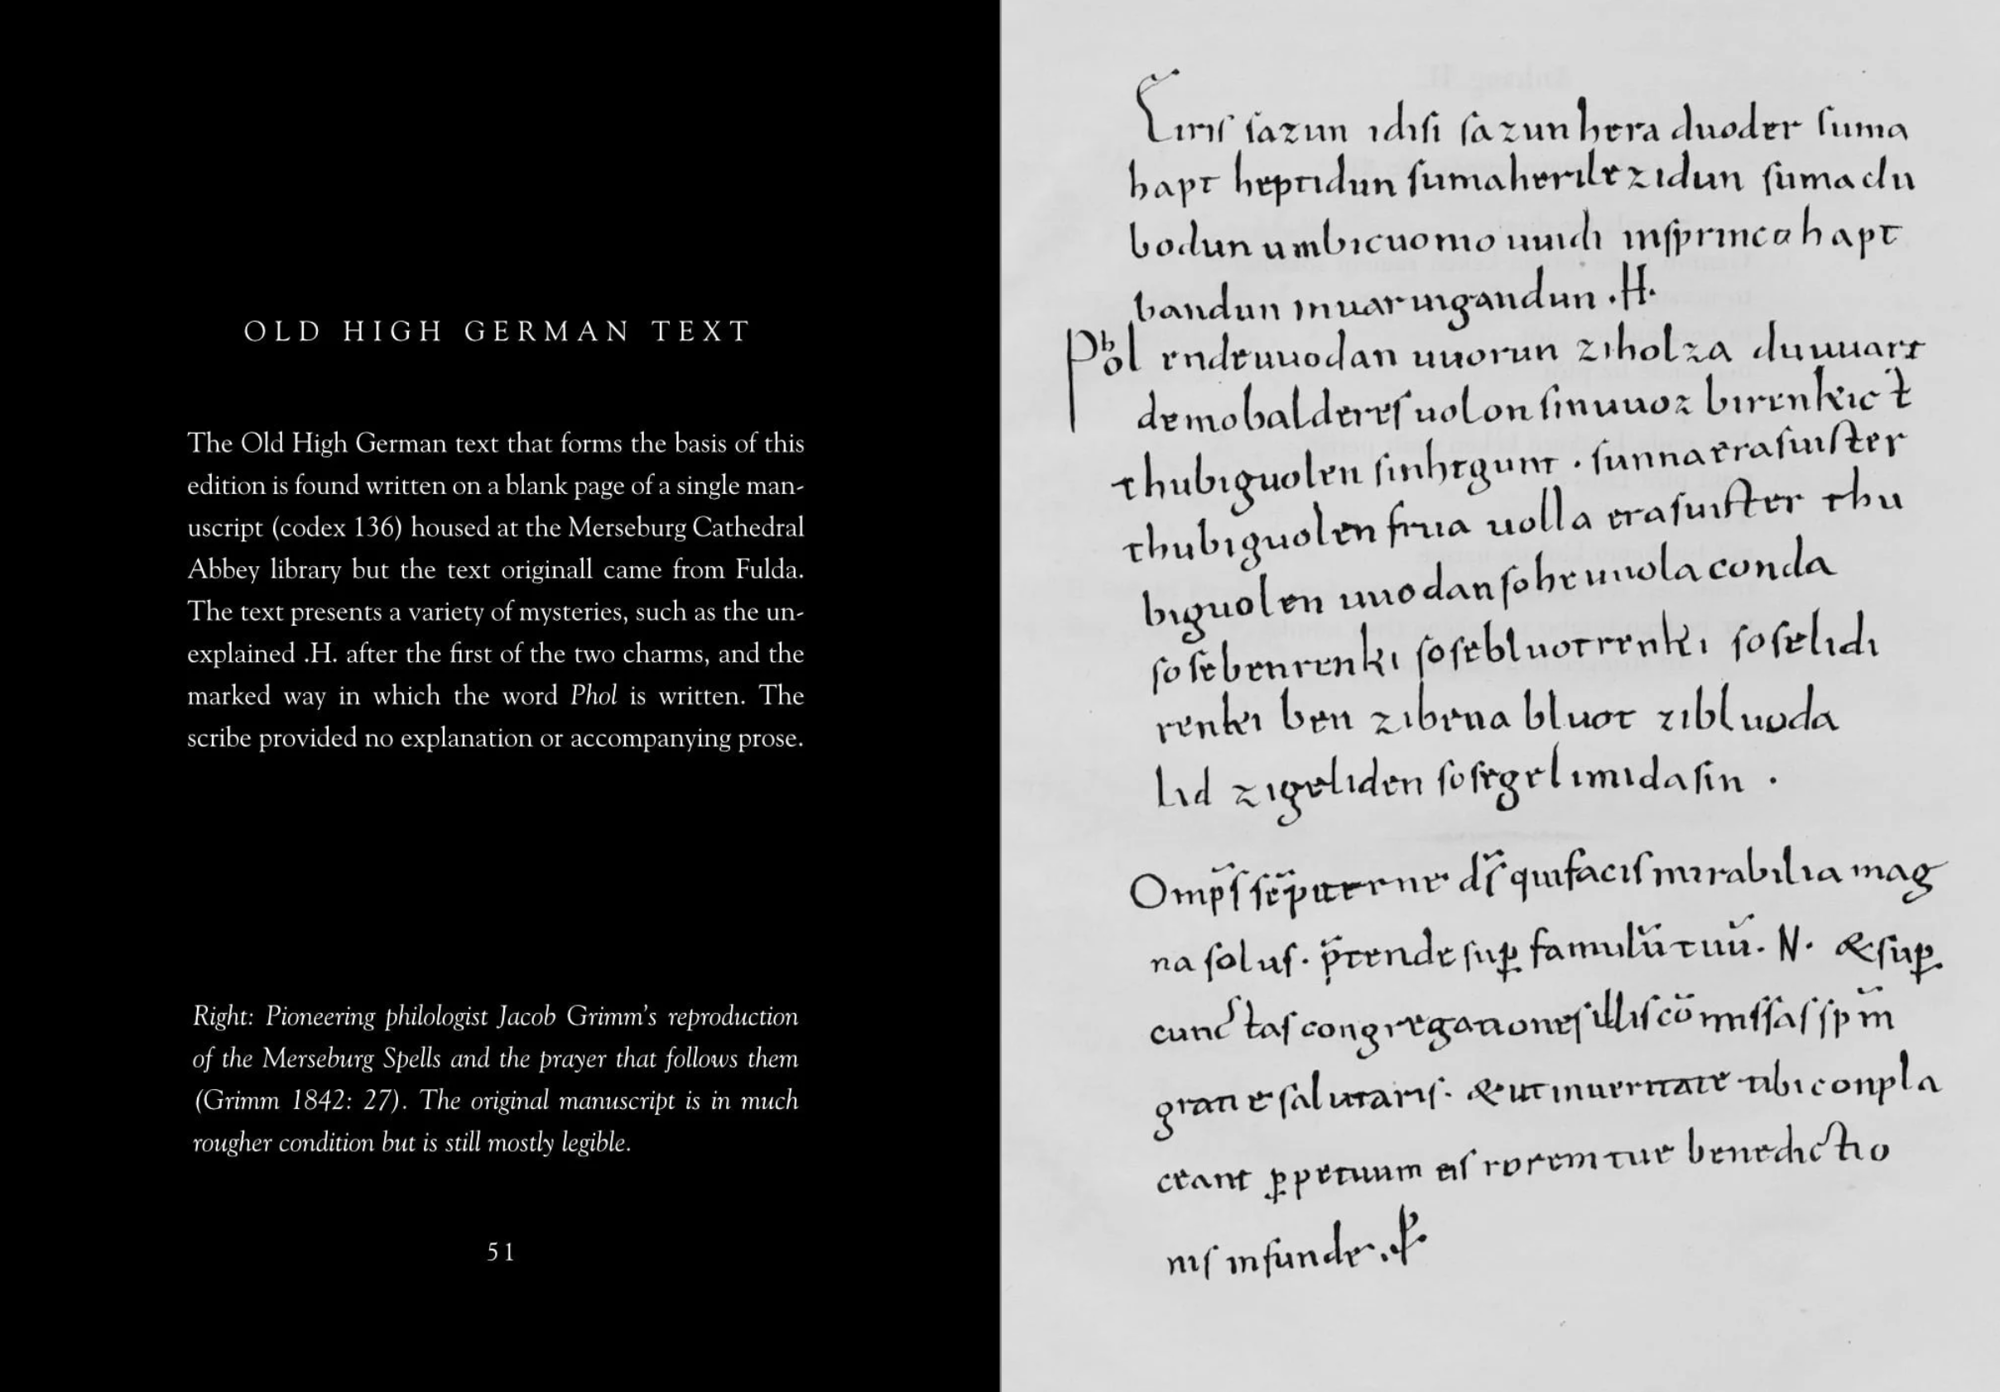 OLD HIGH GERMAN TEXT
The Old High German text that forms the basis of this
edition is found written on a blank page of a single man-
uscript (codex 136) housed at the Merseburg Cathedral
Abbey library but the text originall came from Fulda.
The text presents a variety of mysteries, such as the un-
explained .H. after the first of the two charms, and the
marked way in which the word Phol is written. The
scribe provided no explanation or accompanying prose.
Right: Pioneering philologist Jacob Grimm's reproduction
of the Merseburg Spells and the prayer that follows them
(Grimm 1842: 27). The original manuscript is in much
rougher condition but is still mostly legible.
51
Eiriſ ſazun idiſi ſazun hera duoder ſuma
hapt heptidun ſumaherilezidun ſumaclu
bodun umbicuonio uuidi inſprinca hapt
bandun inuar uigandun ·H·
Phol endeuuodan uuorun ziholza du uuart
demobaldereſ uolon ſinuuoz birenkict
thubiguolen ſinhtgunt · ſunnaeraſuiſter
thubiguolen frua uolla eraſuiſter thu
biguolen uuodan ſohe uuola conda
ſoſebenrenki ſoſebluotrenki ſoſelidi
renki ben zibena bluot zibluoda
lid zigeliden ſoſegelimida ſin ·
Omp̄ſ ſēpiterne d̄ſ quifaciſ mirabilia mag
na ſoluſ · p̄tende ſuꝑ famulū tuū · N · &ſuꝑ
cunctaſ congregationeſ illiſ cōmiſſaſ ſpm̄
gratie ſalutariſ · &ut inueritate tibi conpla
ceant ꝑpetuum eiſ rorem tue benedictio
niſ infunde